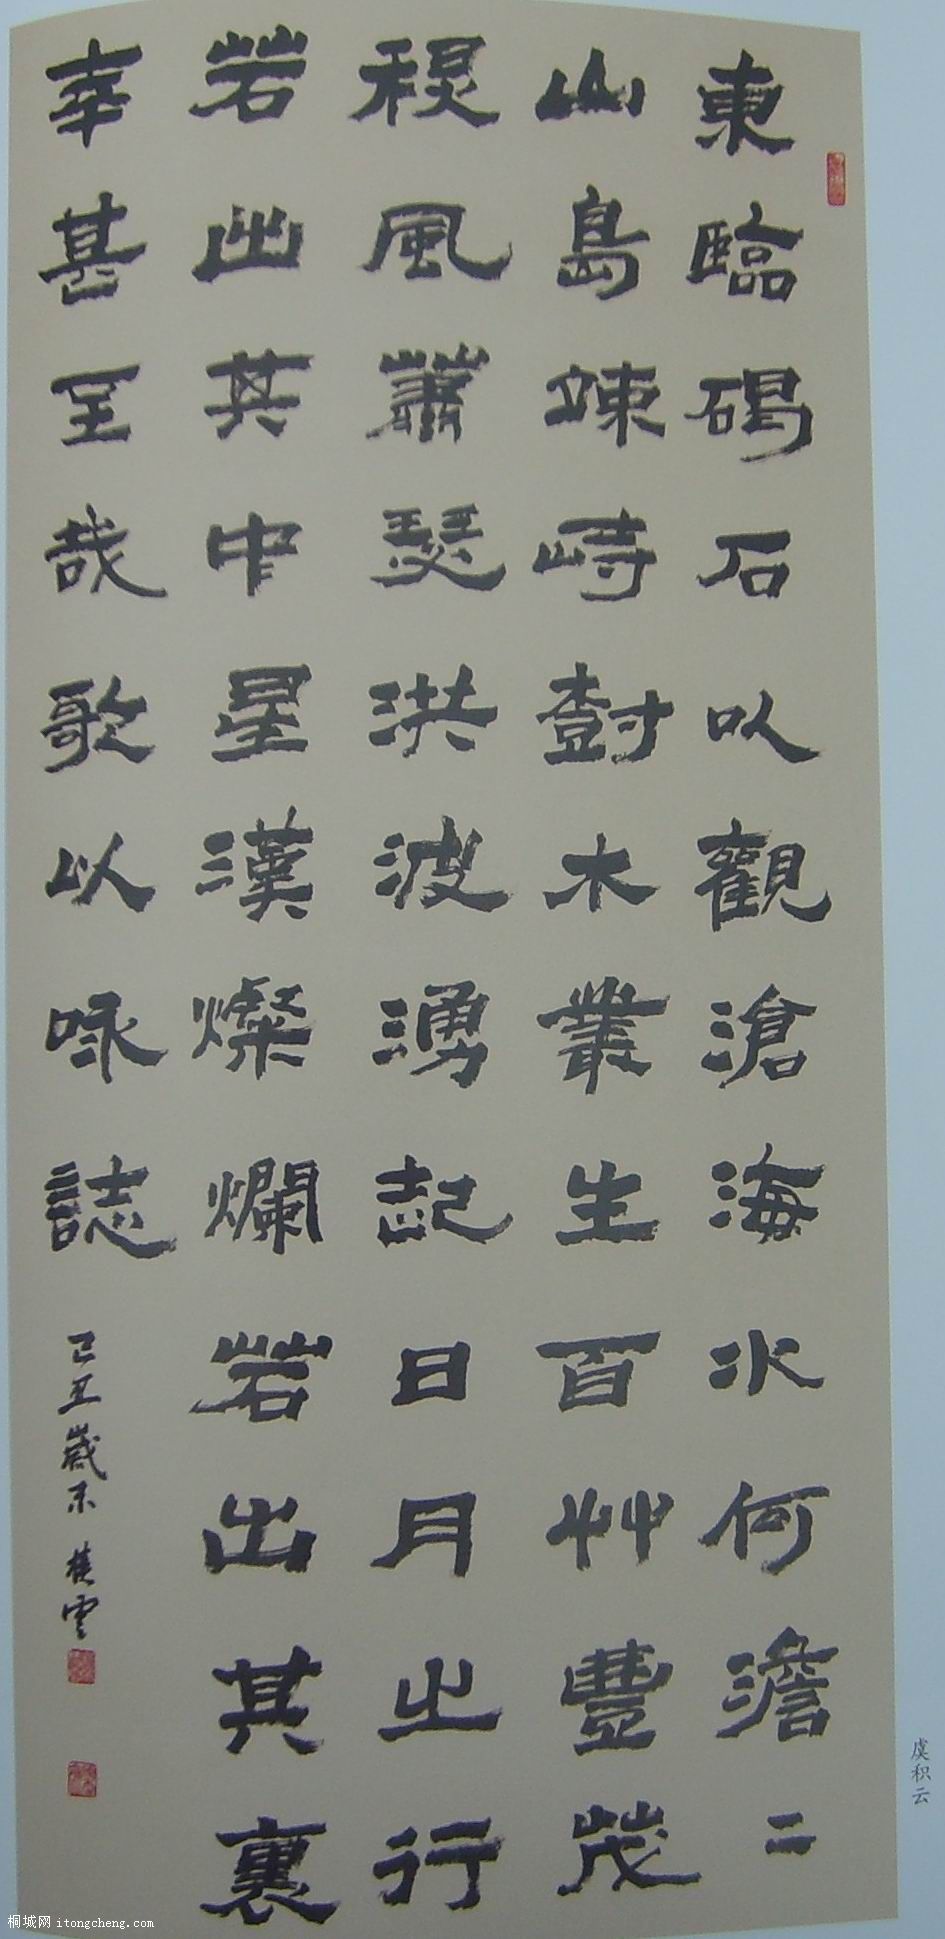 東臨碣石以觀滄海水何澹二
山島竦峙樹木叢生百艸豐茂
秋風蕭瑟洪波湧起日月之行
若出其中星漢燦爛若出其裏
幸甚至哉歌以咏誌
己丑歲末 積雲
虞积云
桐城网 itongcheng.com